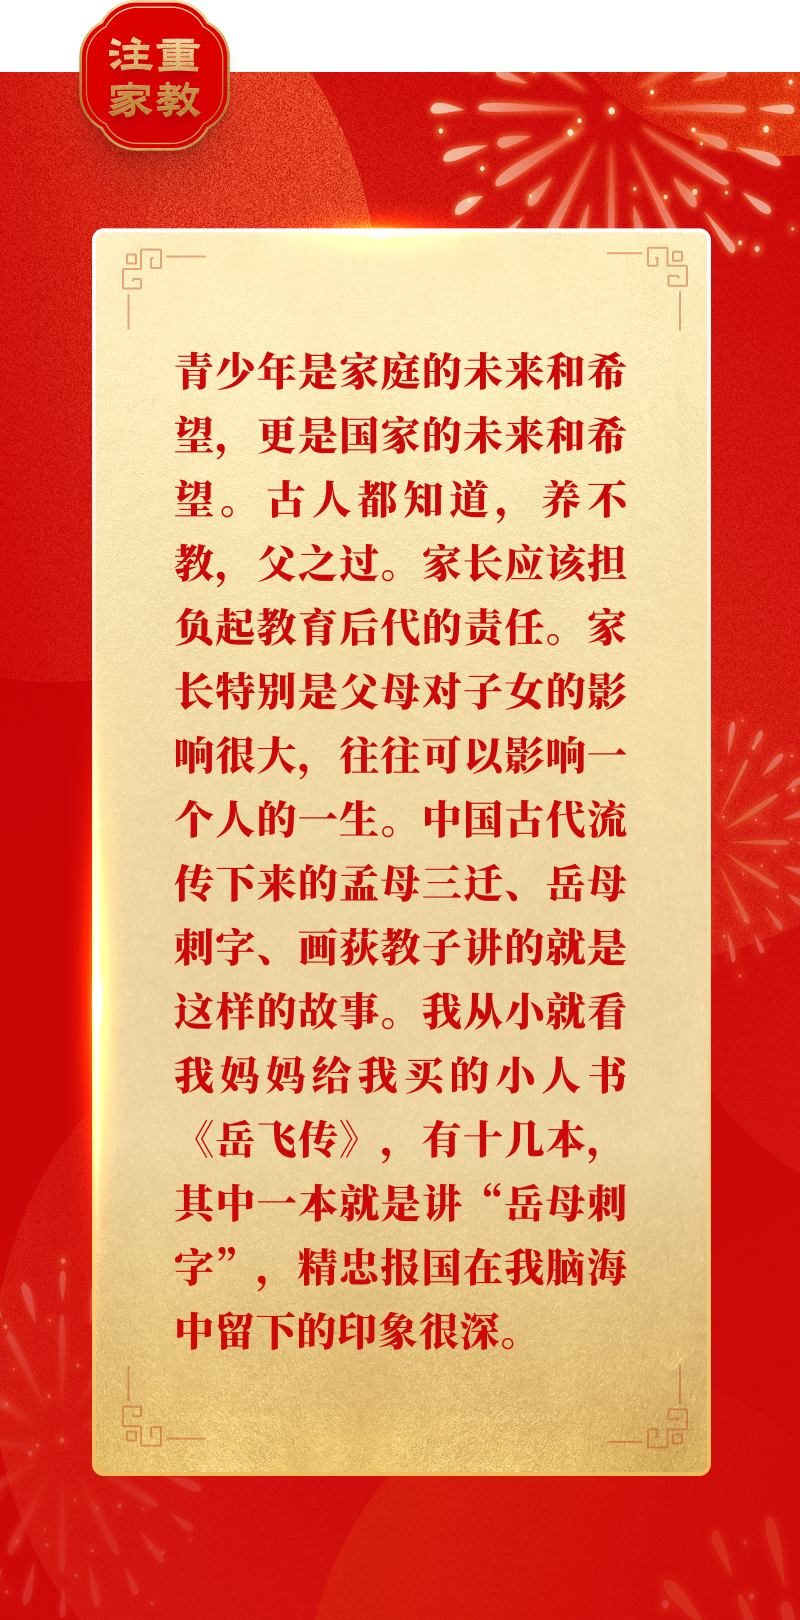 注重
家教
青少年是家庭的未来和希
望，更是国家的未来和希
望。古人都知道，养不
教，父之过。家长应该担
负起教育后代的责任。家
长特别是父母对子女的影
响很大，往往可以影响一
个人的一生。中国古代流
传下来的孟母三迁、岳母
刺字、画荻教子讲的就是
这样的故事。我从小就看
我妈妈给我买的小人书
《岳飞传》，有十几本，
其中一本就是讲“岳母刺
字”，精忠报国在我脑海
中留下的印象很深。